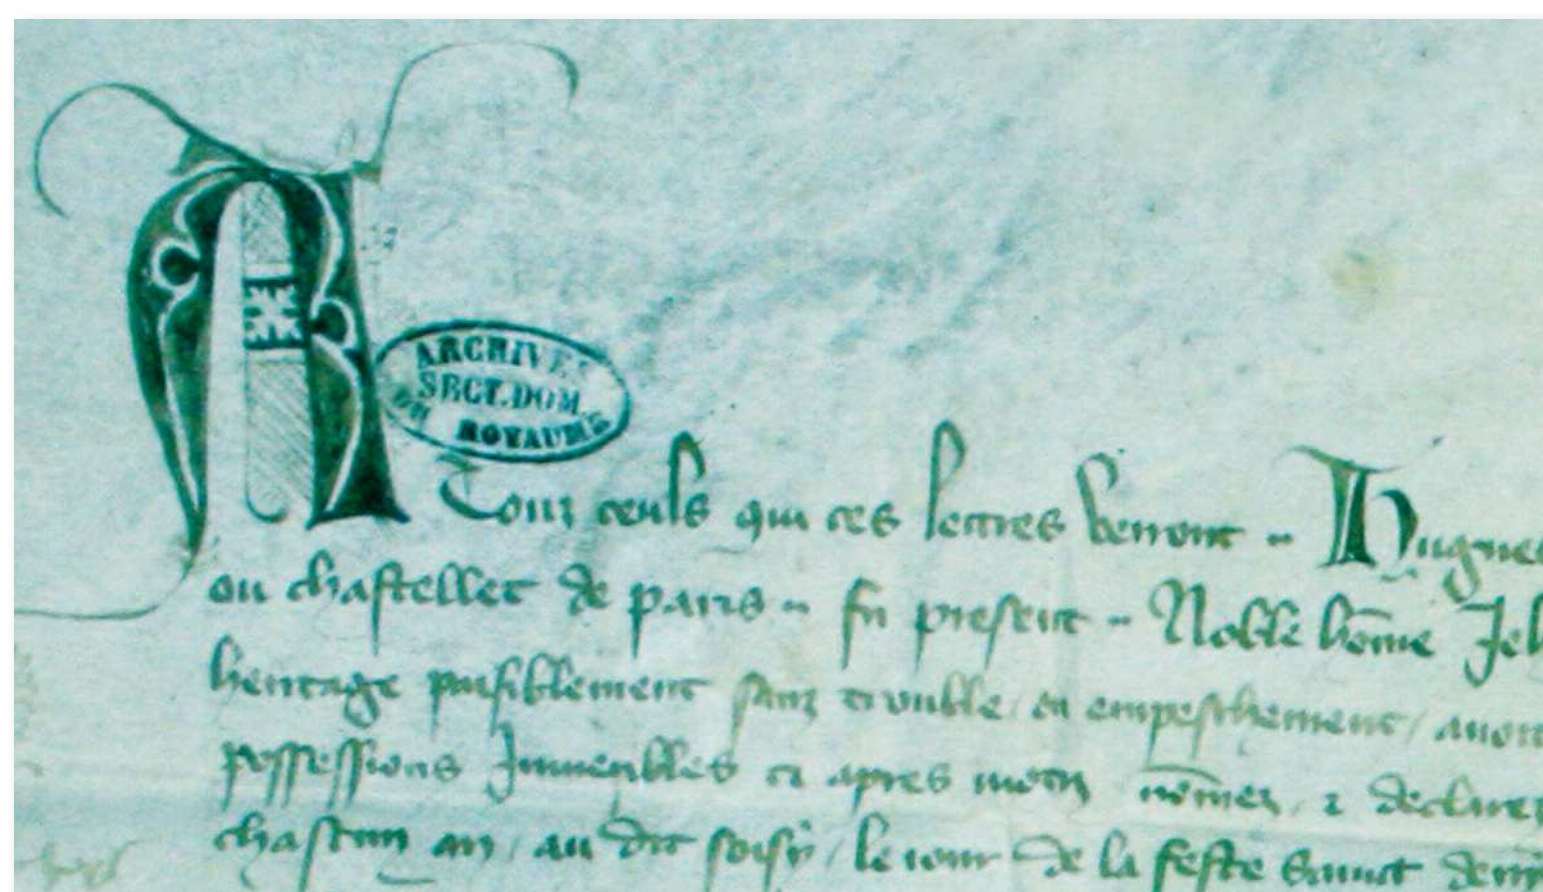 A
ARCHIVES
SECT. DOM.
DU ROYAUME
Touz ceuls qui ces lettres verront Hugues
ou chastellet de paris fu present Noble home Jeh
heritage paisiblement sanz trouble ou empeschement / auou
possessions Inmeubles ci apres nomez & declarez
chascun an / au dit soisy / le iour de la feste saint deny